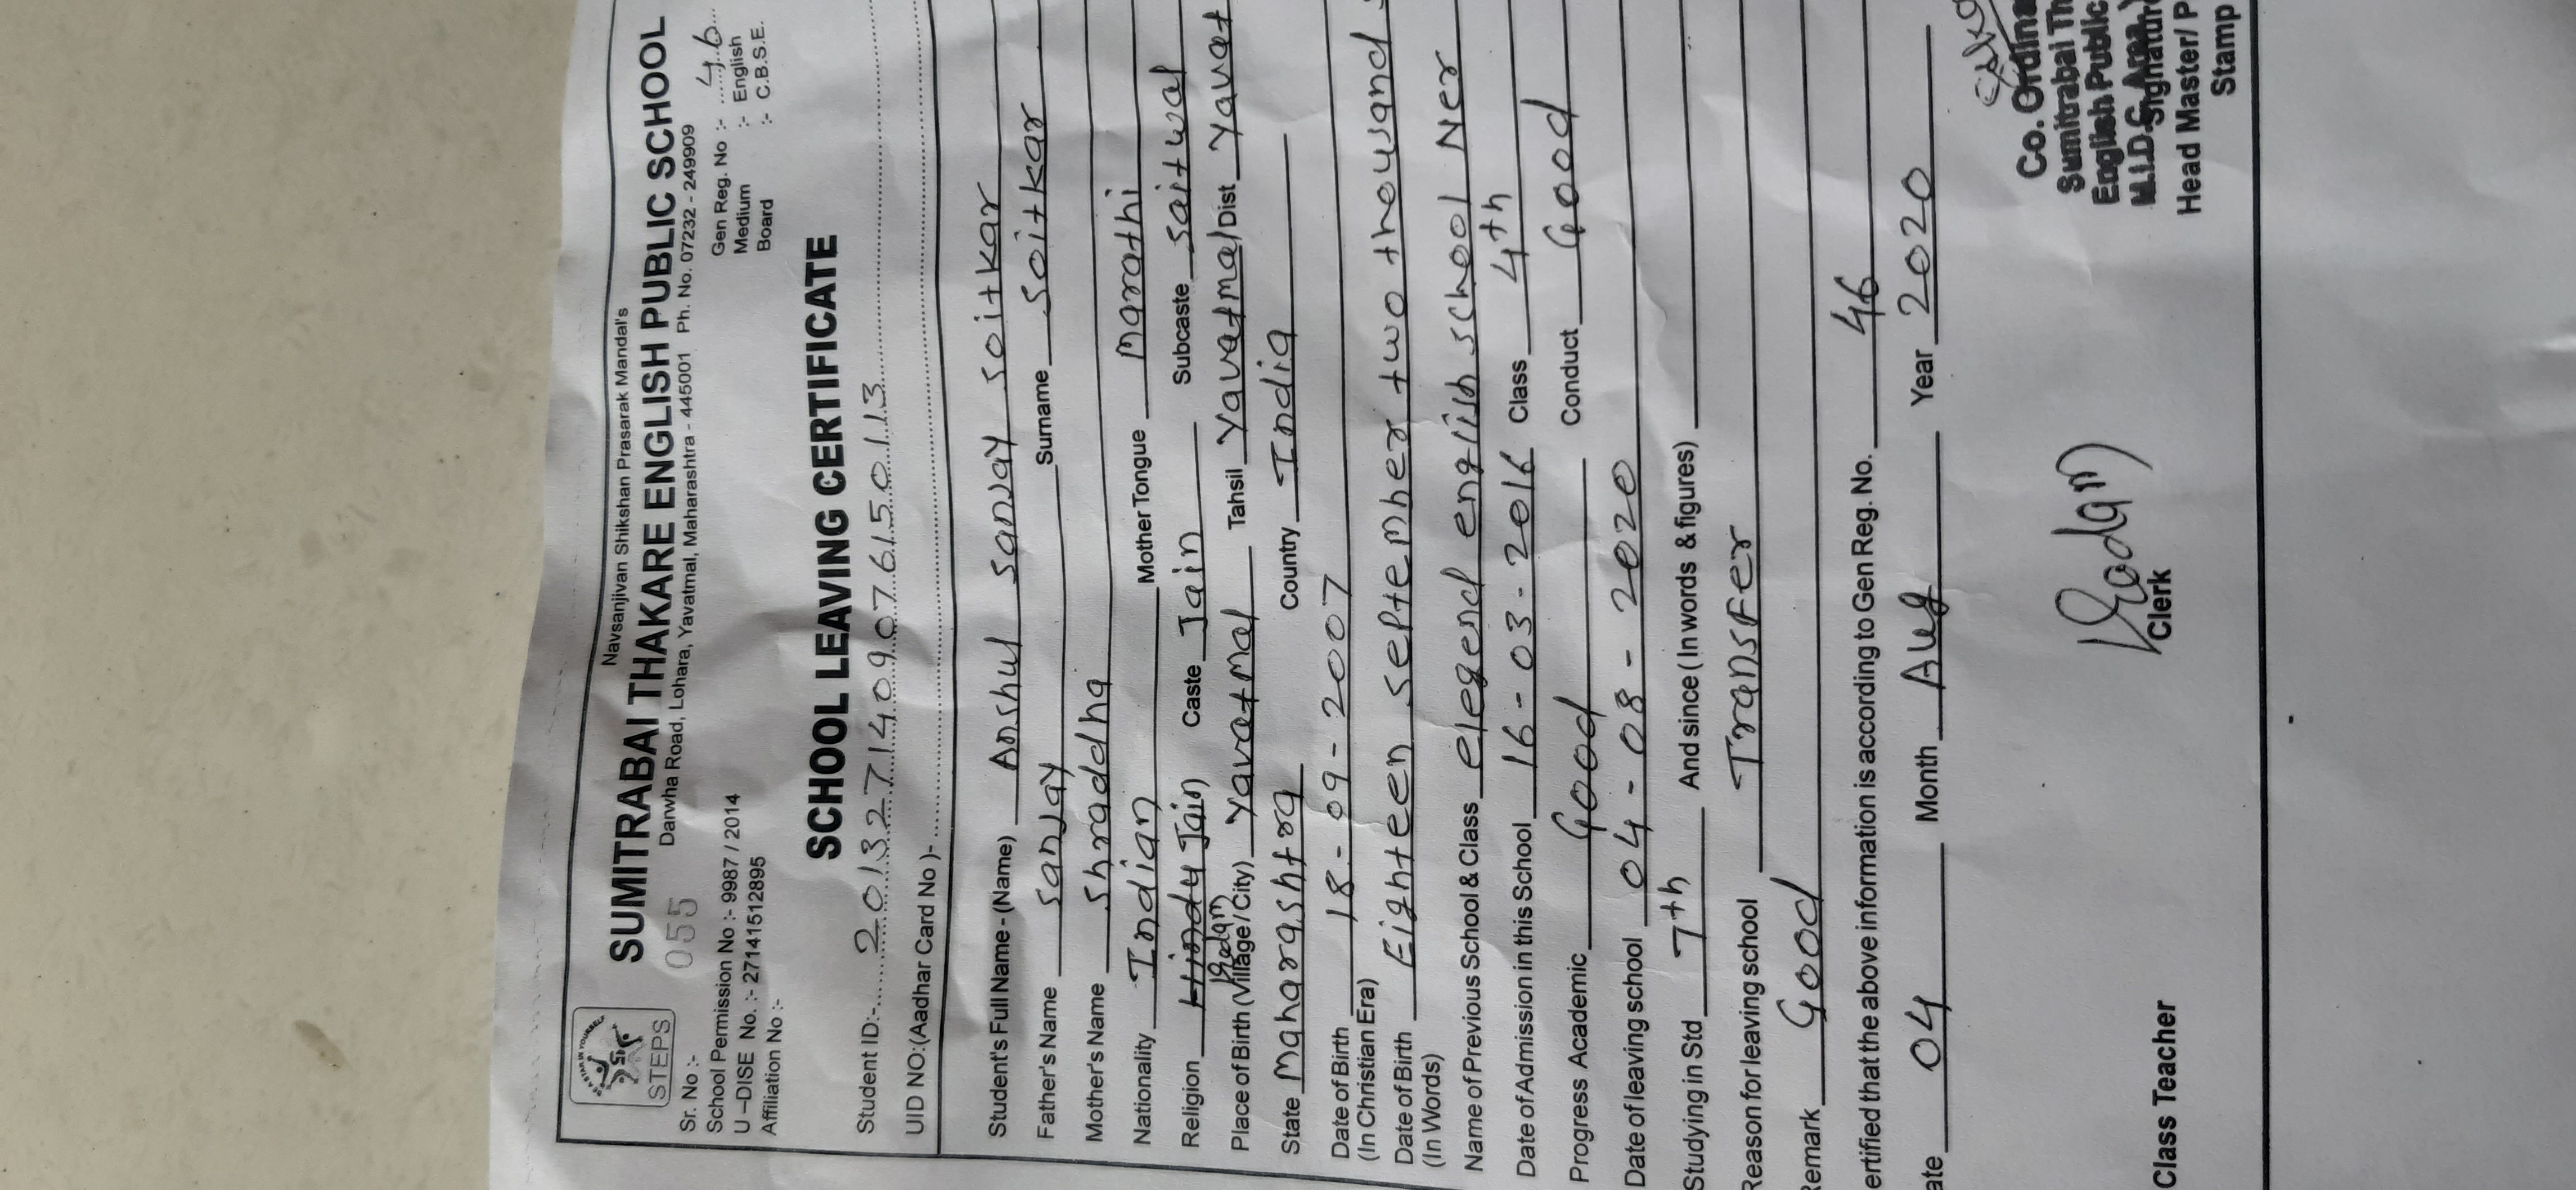 Navsanjivan Shikshan Prasarak Mandal's
SUMITRABAI THAKARE ENGLISH PUBLIC SCHOOL
Darwha Road, Lohara, Yavatmal, Maharashtra - 445001 Ph. No. 07232 - 249909
STEPS
Sr. No :- 055
Gen Reg. No :- 46
School Permission No :- 9987 / 2014
Medium :- English
U -DISE No. :- 27141512895
Board :- C.B.S.E.
Affiliation No :-
SCHOOL LEAVING CERTIFICATE
Student ID:- 2013271409076150113
UID NO:(Aadhar Card No )-
Student's Full Name - (Name) Anshul sanjay soitkar
Father's Name sanjay Surname soitkar
Mother's Name shraddha
Nationality Indian Mother Tongue marathi
Religion Hindu Jain Caste Jain Subcaste saitwal
Place of Birth (Village/City) Yavatmal Tahsil Yavatmal Dist Yavat
State maharashtra Country India
Date of Birth 18 - 09 - 2007
(In Christian Era)
Date of Birth Eighteen september two thousand
(In Words)
Name of Previous School & Class elegend english school Ner
Date of Admission in this School 16 - 03 - 2016 Class 4th
Progress Academic Good Conduct Good
Date of leaving school 04 - 08 - 2020
Studying in Std 7th And since ( In words & figures)
Reason for leaving school Transfer
emark Good
ertified that the above information is according to Gen Reg. No. 46
ate 04 Month Aug Year 2020
Co. Ordina
Sumitrabai Th
English Public
M.I.D.C. Area,
Class Teacher
Clerk
Signature
Head Master/ P
Stamp